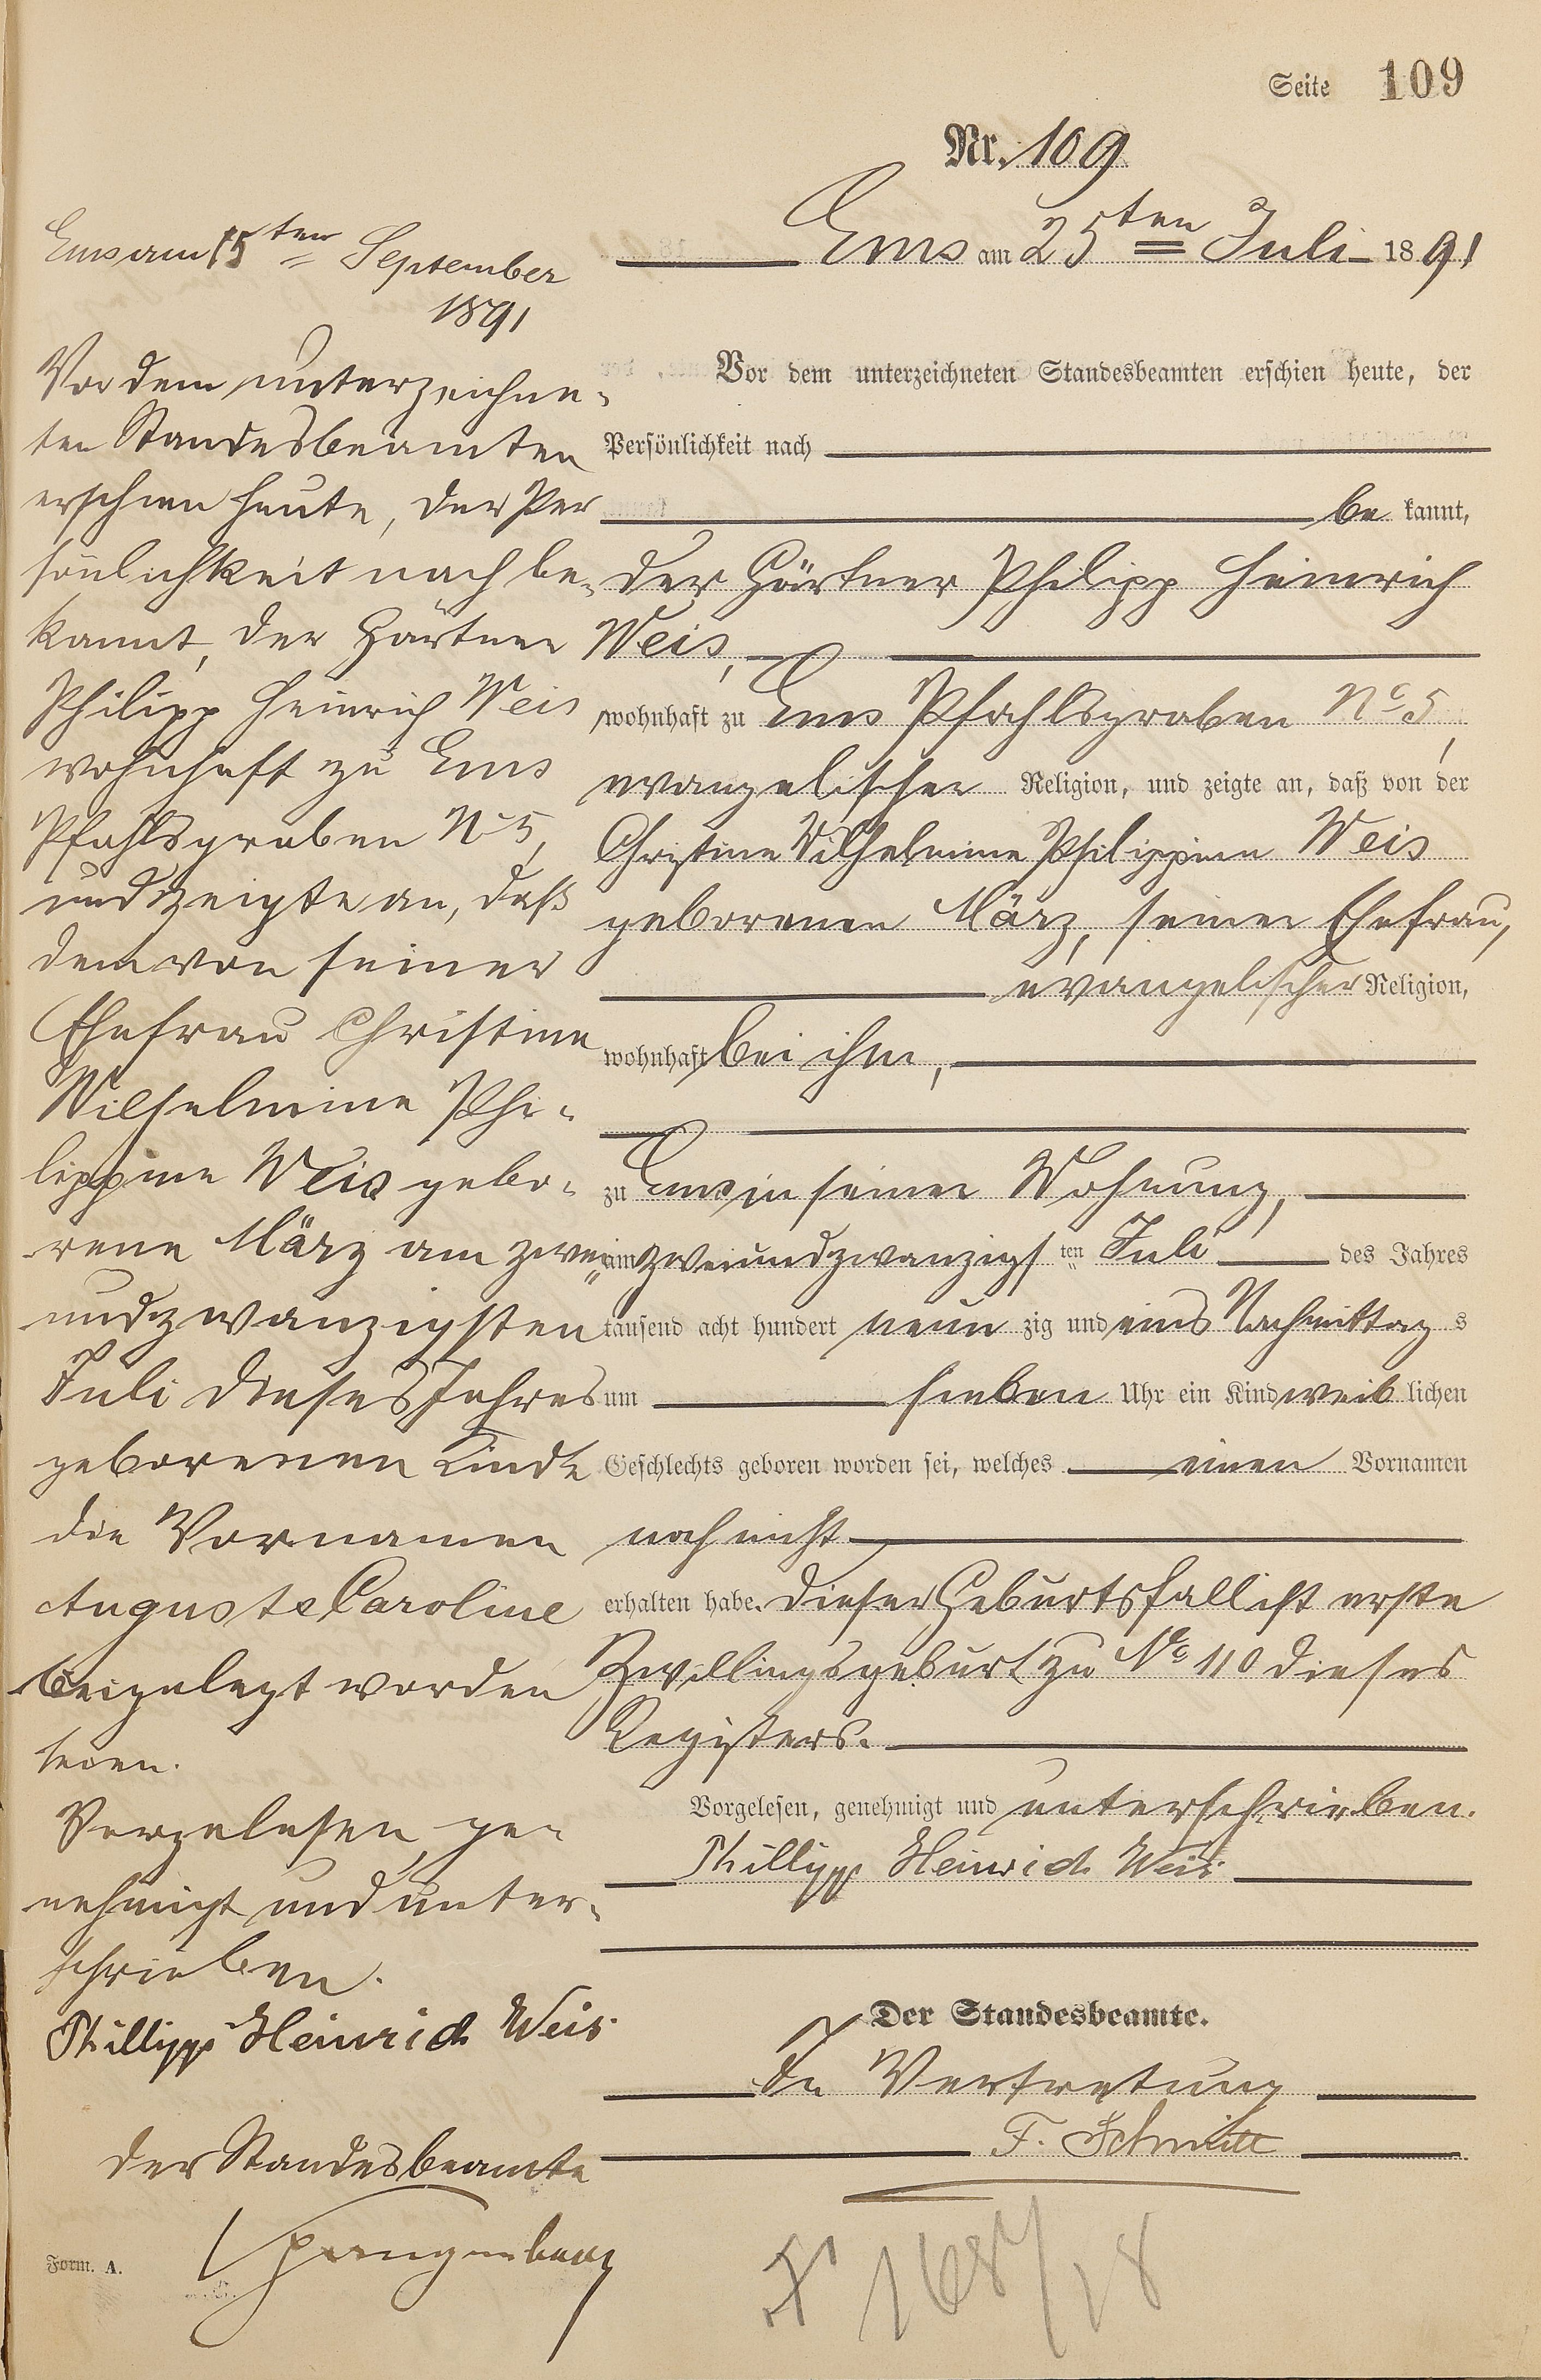 Seite 109
Nr. 109
Ems am 25ten Juli 1891
Vor dem unterzeichneten Standesbeamten erschien heute, der
Persönlichkeit nach
be kannt,
der Gärtner Philipp Heinrich
Weis,
wohnhaft zu Ems Pfahlsgraben No 5,
evangelischer Religion, und zeigte an, daß von der
Christine Wilhelmine Philippine Weis
geborenen März, seiner Ehefrau,
evangelischer Religion,
wohnhaft bei ihm,
zu Ems in seiner Wohnung,
am zweiundzwanzigs ten Juli des Jahres
tausend acht hundert neun zig und eins Nachmittag s
um sieben Uhr ein Kind weib lichen
Geschlechts geboren worden sei, welches einen Vornamen
noch nicht
erhalten habe. Dieser Geburtsfall ist erste
Zwillingsgeburt zu No 110 dieses
Registers.
Vorgelesen, genehmigt und unterschrieben.
Phillipp Heinrich Weis
Der Standesbeamte.
In Vertretung
F. Schmitt
Ems am 15ten September
1891
Vor dem unterzeichne-
ten Standesbeamten
erschien heute, der Per
sönlichkeit nach be-
kannt, der Gärtner
Philipp Heinrich Weis
wohnhaft zu Ems
Pfahlsgraben No 5,
und zeigte an, daß
dem von seiner
Ehefrau Christine
Wilhelmine Phi-
lippine Weis gebo-
rene März am zwei-
undzwanzigsten
Juli dieses Jahres
geborenen Kinde
die Vornamen
Auguste Caroline
beigelegt worden
seien.
Vorgelesen, ge-
nehmigt und unter-
schrieben.
Phillipp Heinrich Weis
Der Standesbeamte
Spangenberg
Form. A.